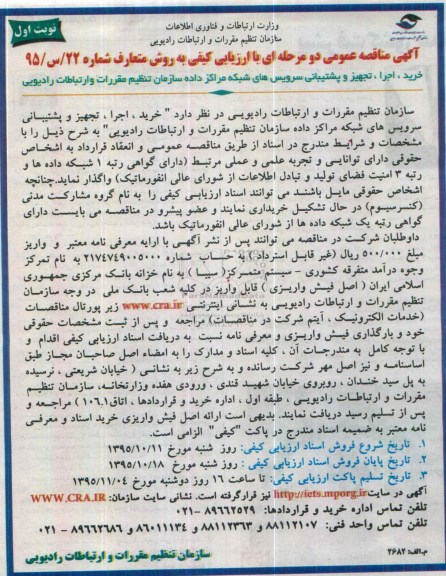 وزارت ارتباطات و فناوری اطلاعات
سازمان تنظیم مقررات و ارتباطات رادیویی
نوبت اول
آگهی مناقصه عمومی دو مرحله ای با ارزیابی کیفی به روش متعارف شماره ۲۲/س/۹۵
خرید ، اجرا ، تجهیز و پشتیبانی سرویس های شبکه مراکز داده سازمان تنظیم مقررات وارتباطات رادیویی
سازمان تنظیم مقررات و ارتباطات رادیویی در نظر دارد " خرید ، اجرا ، تجهیز و پشتیبانی
سرویس های شبکه مراکز داده سازمان تنظیم مقررات و ارتباطات رادیویی" به شرح ذیل را با
مشخصات و شرایط مندرج در اسناد از طریق مناقصه عمومی و انعقاد قرارداد به اشخاص
حقوقی دارای توانایی و تجربه علمی و عملی مرتبط (دارای گواهی رتبه ۱ شبکه داده ها و
رتبه ۳ امنیت فضای تولید و تبادل اطلاعات از شورای عالی انفورماتیک) واگذار نماید.چنانچه
اشخاص حقوقی مایل باشند می توانند اسناد ارزیابی کیفی را به نام گروه مشارکت مدنی
(کنسرسیوم) در حال تشکیل خریداری نمایند و عضو پیشرو در مناقصه می بایست دارای
گواهی رتبه یک شبکه داده ها از شورای عالی انفورماتیک باشد.
داوطلبان شرکت در مناقصه می توانند پس از نشر آگهی با ارایه معرفی نامه معتبر و واریز
مبلغ ۵۰۰/۰۰۰ ریال (غیر قابل استرداد) به حساب شماره ۲۱۷۴۷۴۹۰۰۵۰۰۰ به نام تمرکز
وجوه درآمد متفرقه کشوری - سیستم متمرکز( سیبا ) به نام خزانه بانک مرکزی جمهوری
اسلامی ایران ( اصل فیش واریزی ) قابل واریز در کلیه شعب بانک ملی در وجه سازمان
تنظیم مقررات و ارتباطات رادیویی به نشانی اینترنتی www.cra.ir زیر پورتال مناقصات
(خدمات الکترونیک ، آیتم شرکت در مناقصات) مراجعه و پس از ثبت مشخصات حقوقی
خود و بارگذاری فیش واریزی و معرفی نامه نسبت به دریافت اسناد ارزیابی کیفی اقدام و
با توجه کامل به مندرجات آن ، کلیه اسناد و مدارک را به امضاء اصل صاحبان مجاز طبق
اساسنامه و نیز اصل مهر شرکت رسانده و به شرح زیر به نشانی ( خیابان شریعتی ، نرسیده
به پل سید خندان ، روبروی خیابان شهید قندی ، ورودی هفده وزارتخانه، سازمان تنظیم
مقررات و ارتباطات رادیویی ، طبقه اول ، اداره خرید و قراردادها ، اتاق۱۰۶.۱ ) مراجعه و
پس از تسلیم رسید دریافت نمایند. بدیهی است ارائه اصل فیش واریزی خرید اسناد و معرفی
نامه معتبر به ضمیمه اسناد مندرج در پاکت "کیفی" الزامی است.
۱. تاریخ شروع فروش اسناد ارزیابی کیفی: روز شنبه مورخ ۱۳۹۵/۱۰/۱۱
۲. تاریخ پایان فروش اسناد ارزیابی کیفی : روز شنبه مورخ ۱۳۹۵/۱۰/۱۸
۳. تاریخ تسلیم پاکت ارزیابی کیفی: تا ساعت ۱۶ روز دوشنبه مورخ ۱۳۹۵/۱۱/۰۴
آگهی در سایت http://iets.mporg.ir نیز قرارگرفته است. نشانی سایت سازمان: WWW.CRA.IR
تلفن تماس اداره خرید و قراردادها: ۸۹۶۶۲۵۲۹-۰۲۱
تلفن تماس واحد فنی: ۸۸۱۱۲۱۰۷ و ۸۸۱۱۲۳۶۳ و ۸۶۰۱۱۱۳۴ و ۸۹۶۶۲۶۸۶ - ۰۲۱
م.الف: ۲۶۸۲
سازمان تنظیم مقررات و ارتباطات رادیویی